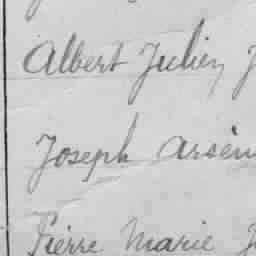 Albert Julien J
Joseph Arsèn
Pierre Marie J